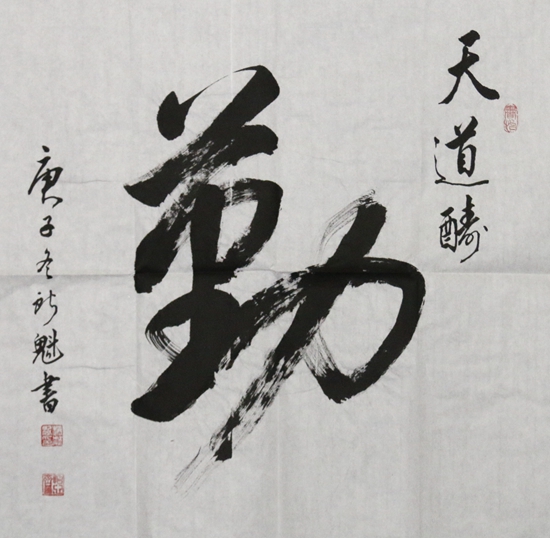 天道酬
勤
庚子冬新魁書